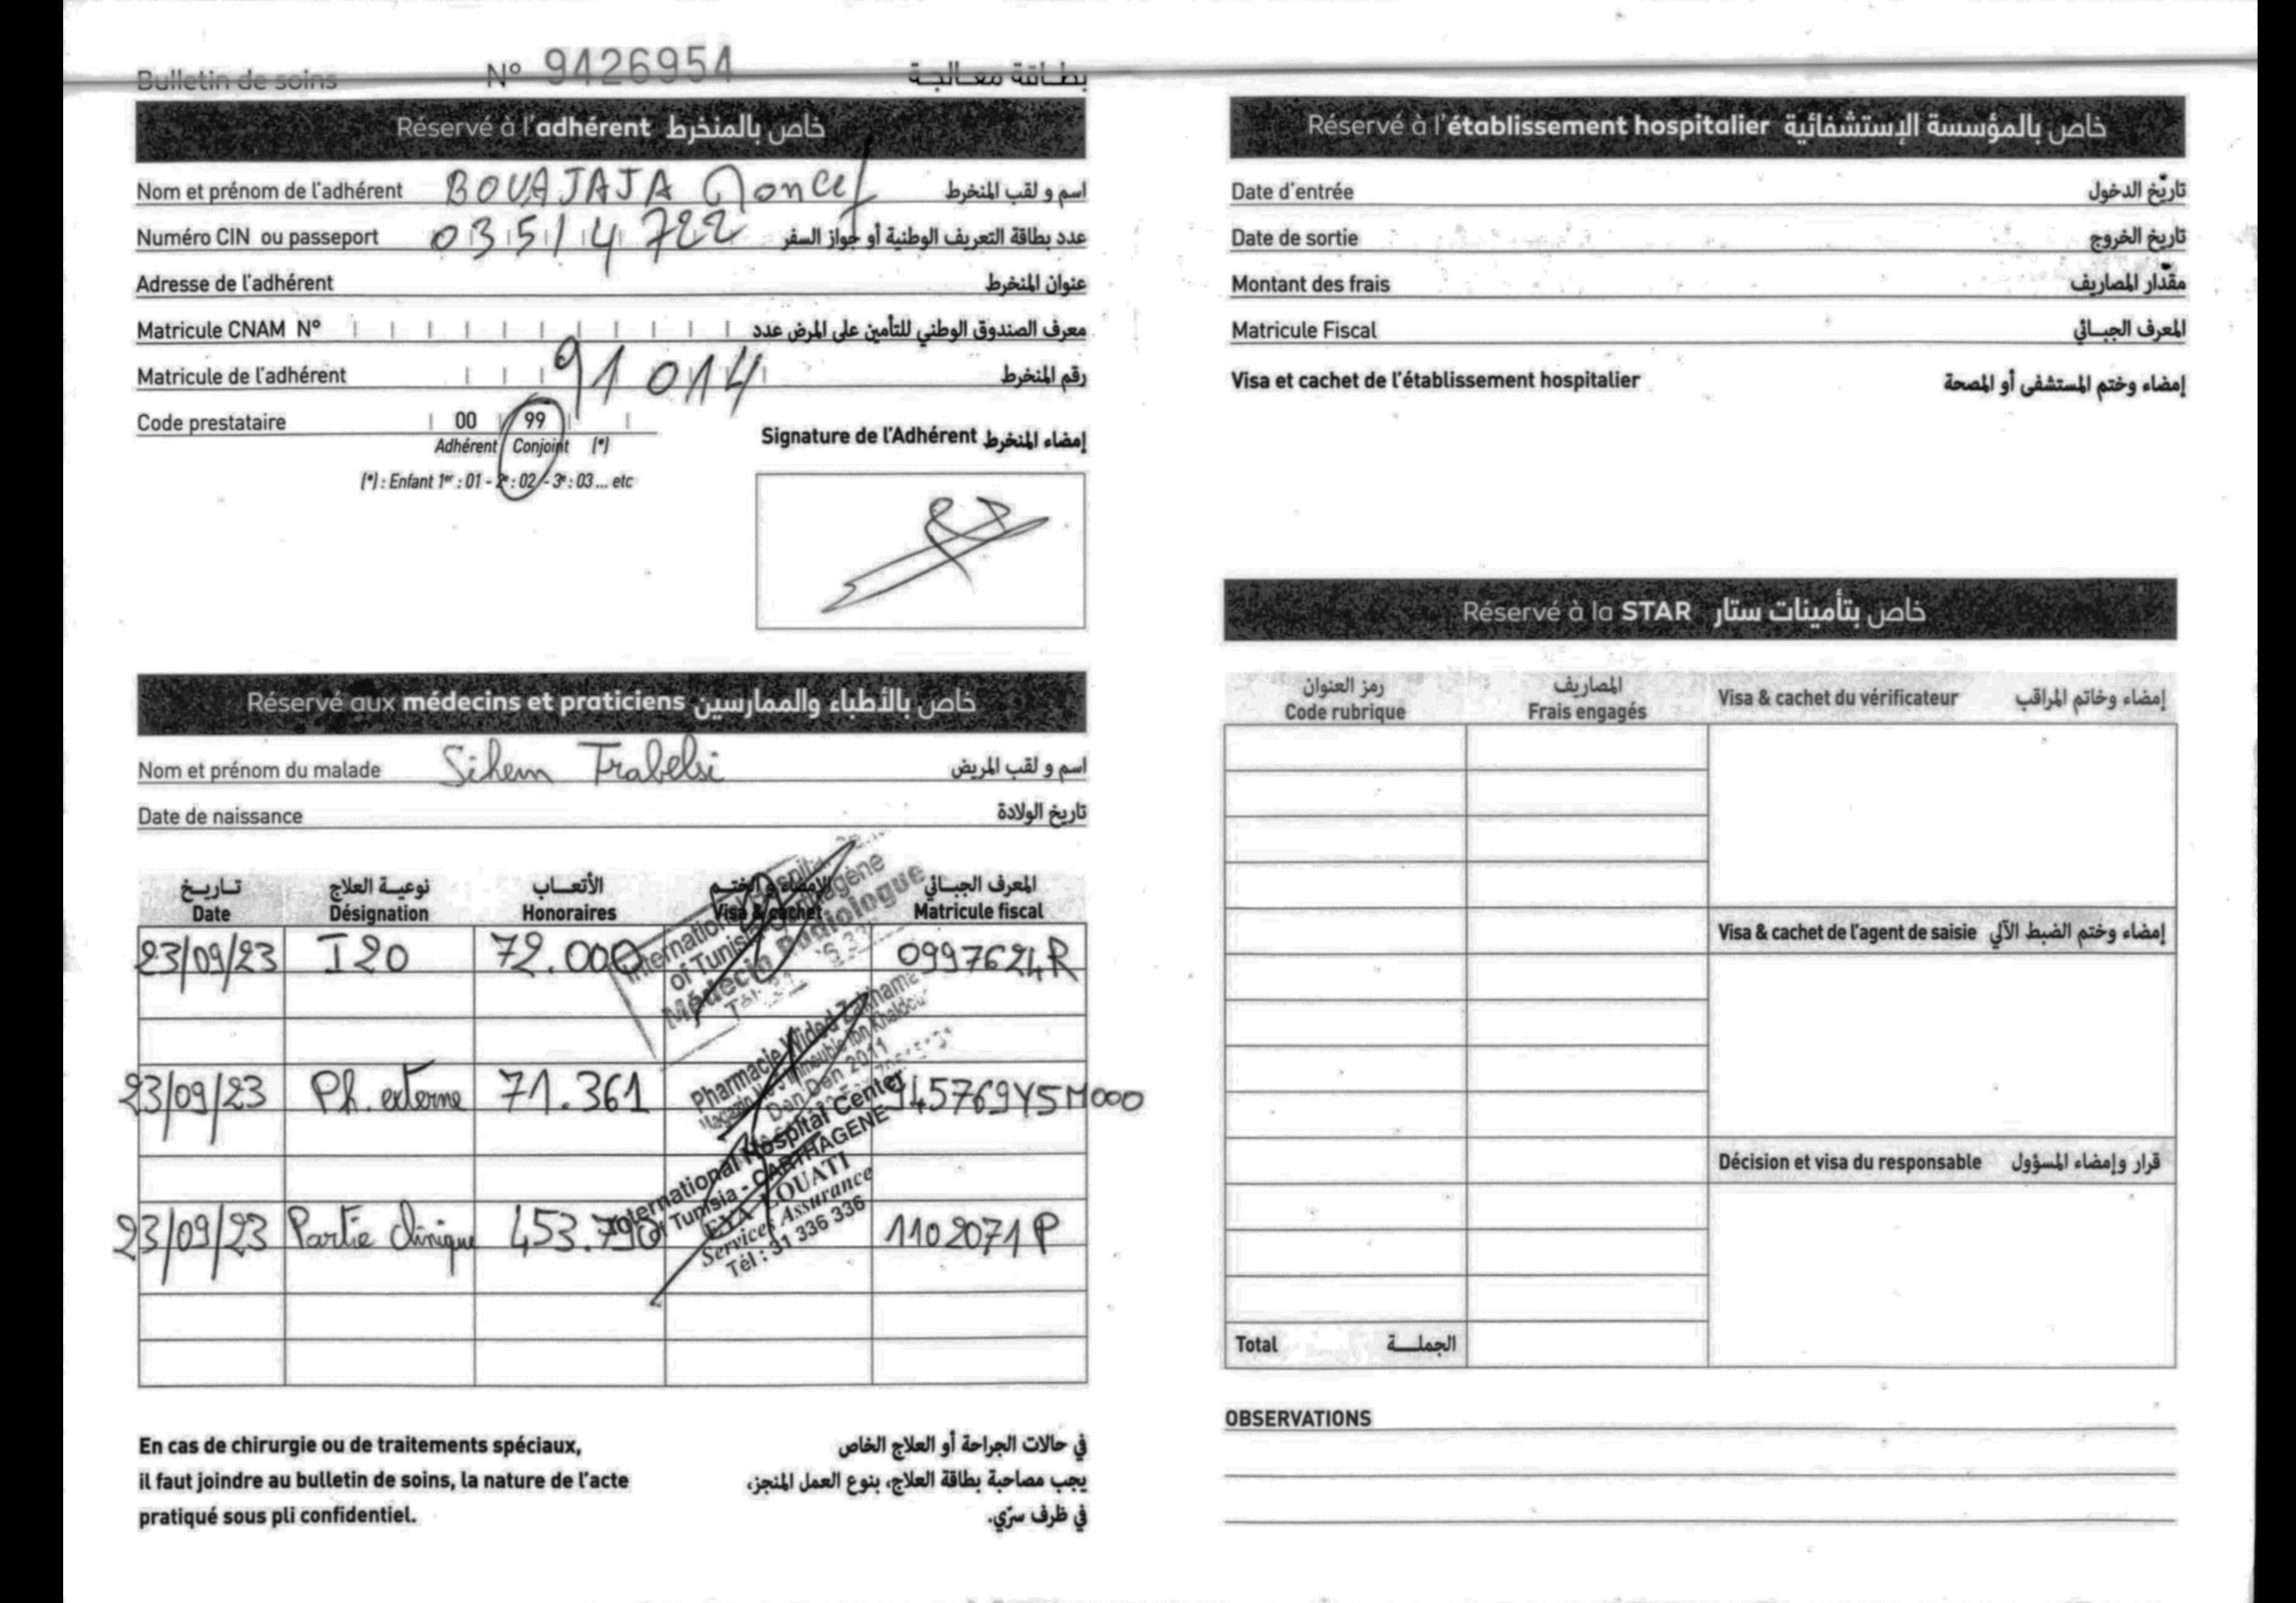 Bulletin de soins N° 9426954 بطاقة معالجة
Réservé à l'adhérent خاص بالمنخرط
Nom et prénom de l'adhérent BOUAJAJA Moncef اسم و لقب المنخرط
Numéro CIN ou passeport 03514722 عدد بطاقة التعريف الوطنية أو جواز السفر
Adresse de l'adhérent عنوان المنخرط
Matricule CNAM N° معرف الصندوق الوطني للتأمين على المرض عدد
Matricule de l'adhérent 91014 رقم المنخرط
Code prestataire 00 99
Adhérent Conjoint (*)
(*) : Enfant 1er : 01 - 2e : 02 - 3e : 03 ... etc
Signature de l'Adhérent إمضاء المنخرط
Réservé aux médecins et praticiens خاص بالأطباء والممارسين
Nom et prénom du malade Sihem Trabelsi اسم و لقب المريض
Date de naissance تاريخ الولادة
تاريخ نوعية العلاج الأتعاب الإمضاء و الختم المعرف الجبائي
Date Désignation Honoraires Visa & cachet Matricule fiscal
23/09/23 I20 72.000 0997624R
International Hospital
of Tunisia Carthagène
Médecin Radiologue
23/09/23 Ph. externe 71.361 945769Y5M000
Pharmacie Wided Zakhama
Magasin Immeuble Ibn Khaldoun
Den Den 2011
23/09/23 Partie clinique 453.790 1102071P
International Hospital Center
of Tunisia - CARTHAGENE
EYA LOUATI
Services Assurance
Tél : 31 336 336
En cas de chirurgie ou de traitements spéciaux,
il faut joindre au bulletin de soins, la nature de l'acte
pratiqué sous pli confidentiel.
في حالات الجراحة أو العلاج الخاص
يجب مصاحبة بطاقة العلاج، بنوع العمل المنجز،
في ظرف سرّي.
Réservé à l'établissement hospitalier خاص بالمؤسسة الإستشفائية
Date d'entrée تاريخ الدخول
Date de sortie تاريخ الخروج
Montant des frais مقدار المصاريف
Matricule Fiscal المعرف الجبائي
Visa et cachet de l'établissement hospitalier إمضاء وختم المستشفى أو المصحة
Réservé à la STAR خاص بتأمينات ستار
رمز العنوان المصاريف
Code rubrique Frais engagés Visa & cachet du vérificateur إمضاء وخاتم المراقب
Visa & cachet de l'agent de saisie إمضاء وختم الضبط الآلي
Décision et visa du responsable قرار وإمضاء المسؤول
Total الجملة
OBSERVATIONS